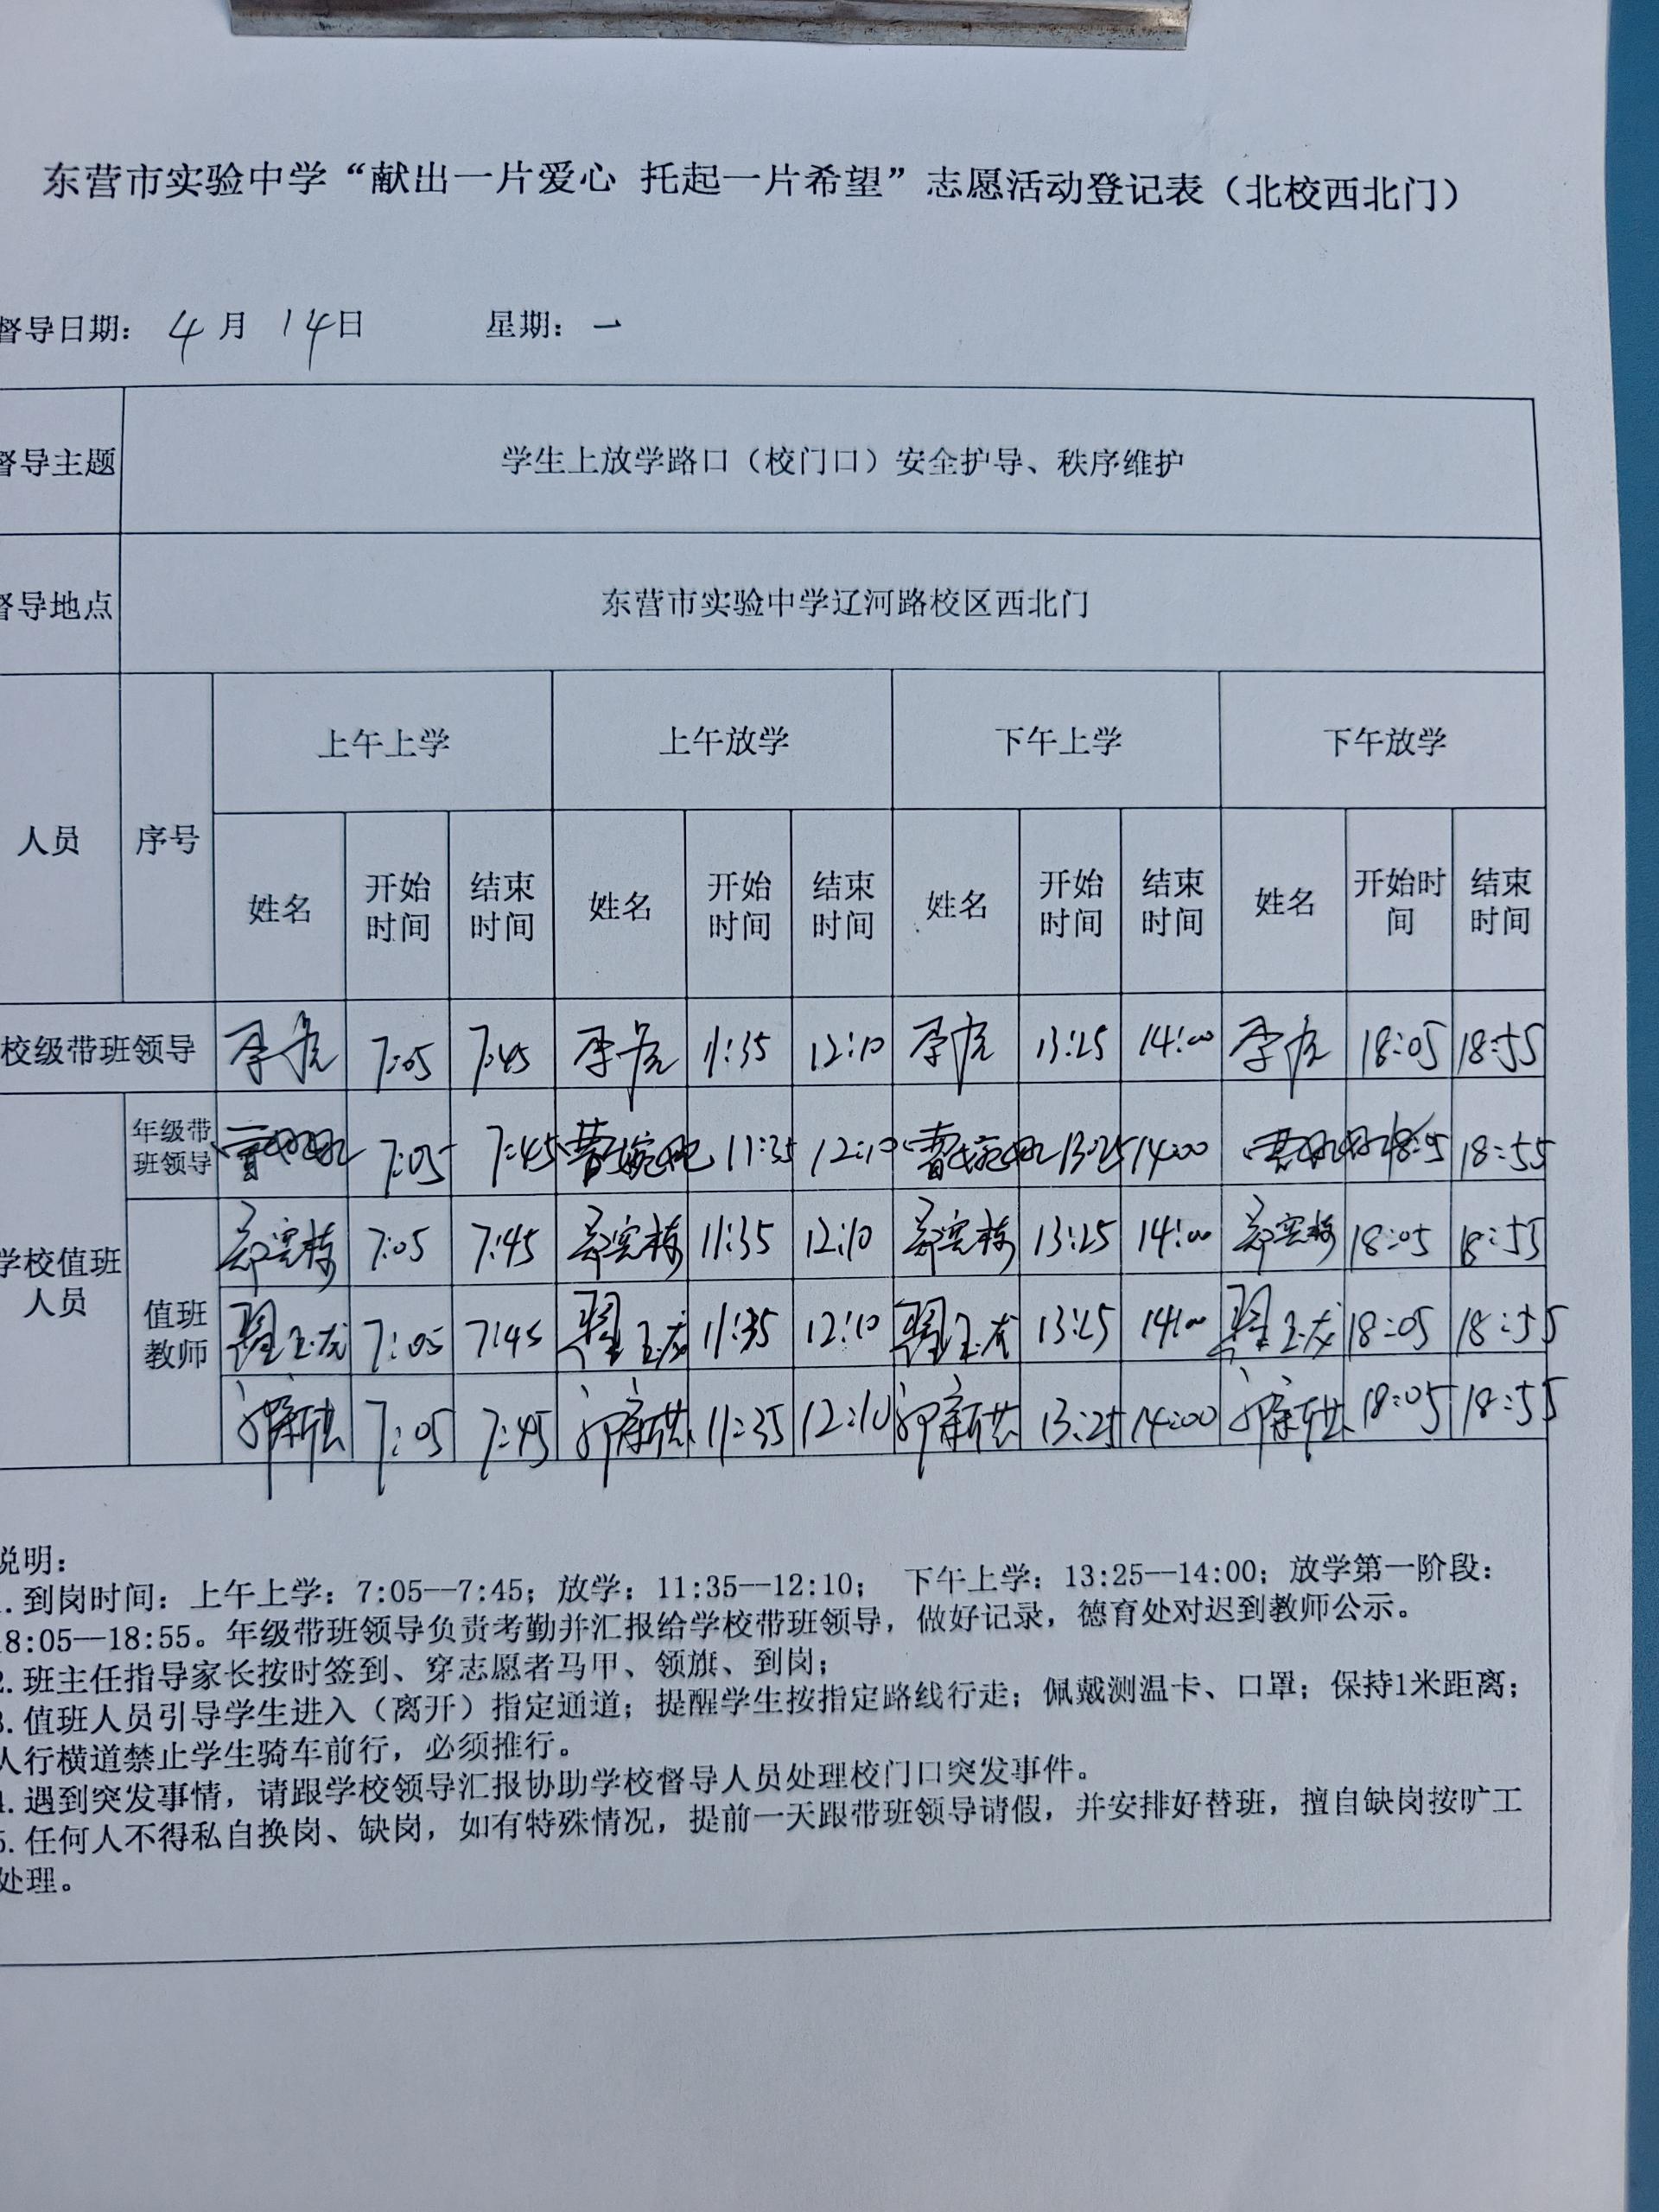 东营市实验中学“献出一片爱心 托起一片希望”志愿活动登记表（北校西北门）
督导日期： 4月 14日 星期：一
督导主题 学生上放学路口（校门口）安全护导、秩序维护
督导地点 东营市实验中学辽河路校区西北门
人员 序号 上午上学 上午放学 下午上学 下午放学
姓名 开始时间 结束时间 姓名 开始时间 结束时间 姓名 开始时间 结束时间 姓名 开始时间 结束时间
校级带班领导 7:05 7:45 11:35 12:10 13:25 14:00 18:05 18:55
学校值班人员 年级带班领导 7:05 7:45 11:35 12:10 13:25 14:00 18:05 18:55
值班教师 7:05 7:45 11:35 12:10 13:25 14:00 18:05 18:55
翟玉龙 7:05 7:45 翟玉龙 11:35 12:10 翟玉龙 13:25 14:00 翟玉龙 18:05 18:55
7:05 7:45 11:35 12:10 13:25 14:00 18:05 18:55
说明：
1.到岗时间：上午上学：7:05—7:45；放学：11:35—12:10； 下午上学：13:25—14:00；放学第一阶段：
18:05—18:55。年级带班领导负责考勤并汇报给学校带班领导，做好记录，德育处对迟到教师公示。
2.班主任指导家长按时签到、穿志愿者马甲、领旗、到岗；
3.值班人员引导学生进入（离开）指定通道；提醒学生按指定路线行走；佩戴测温卡、口罩；保持1米距离；
人行横道禁止学生骑车前行，必须推行。
4.遇到突发事情，请跟学校领导汇报协助学校督导人员处理校门口突发事件。
5.任何人不得私自换岗、缺岗，如有特殊情况，提前一天跟带班领导请假，并安排好替班，擅自缺岗按旷工
处理。